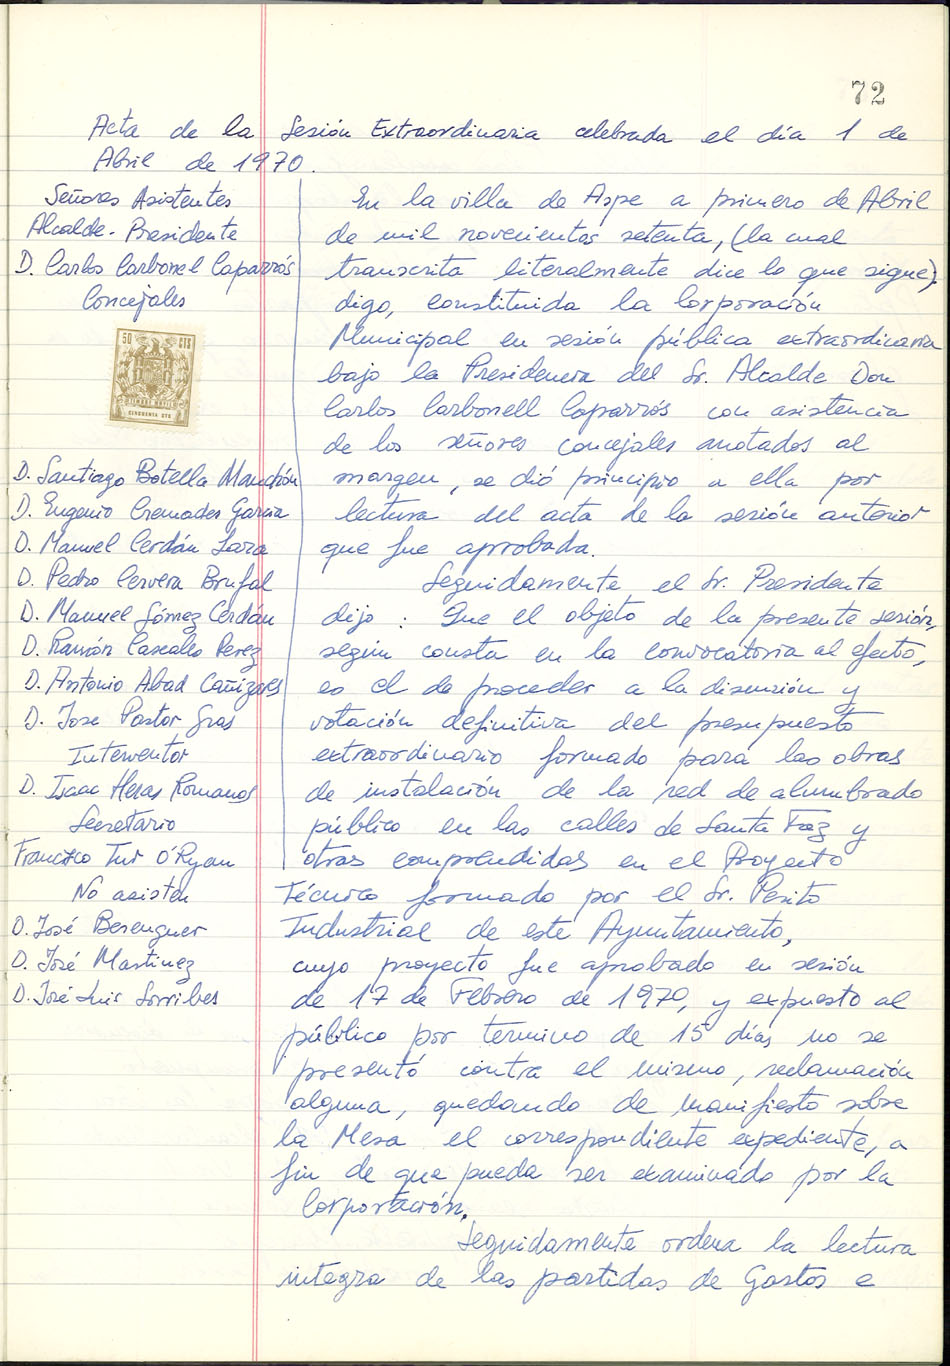 72
Acta de la Sesión Extraordinaria celebrada el día 1 de
Abril de 1970.
Señores Asistentes
Alcalde-Presidente
D. Carlos Carbonel Caparrós
Concejales
50 CTS
TIMBRE MOVIL
CINCUENTA CTS
D. Santiago Botella Manchón
D. Eugenio Cremades Garcia
D. Manuel Cerdán Lara
D. Pedro Cervera Brufal
D. Manuel Gómez Cerdán
D. Ramón Cascales Perez
D. Antonio Abad Cañizares
D. Jose Pastor Gras
Interventor
D. Isaac Heras Romanos
Secretario
Francisco Tur O'Ryan
No asisten
D. José Berenguer
D. José Martinez
D. José Luis Sorribes
En la villa de Aspe a primero de Abril
de mil novecientos setenta, (la cual
transcrita literalmente dice lo que sigue),
digo, constituida la Corporación
Municipal en sesión pública extraordinaria
bajo la Presidencia del Sr. Alcalde Don
Carlos Carbonell Caparrós con asistencia
de los señores concejales anotados al
margen, se dió principio a ella por
lectura del acta de la sesión anterior
que fue aprobada.
Seguidamente el Sr. Presidente
dijo: Que el objeto de la presente sesión,
según consta en la convocatoria al efecto,
es el de proceder a la discusión y
votación definitiva del presupuesto
extraordinario formado para las obras
de instalación de la red de alumbrado
público en las calles de Santa Faz y
otras comprendidas en el Proyecto
Técnico formado por el Sr. Perito
Industrial de este Ayuntamiento,
cuyo proyecto fue aprobado en sesión
de 17 de Febrero de 1970, y expuesto al
público por termino de 15 días no se
presentó contra el mismo, reclamación
alguna, quedando de manifiesto sobre
la Mesa el correspondiente expediente, a
fin de que pueda ser examinado por la
Corporación.
Seguidamente ordena la lectura
integra de las partidas de Gastos e